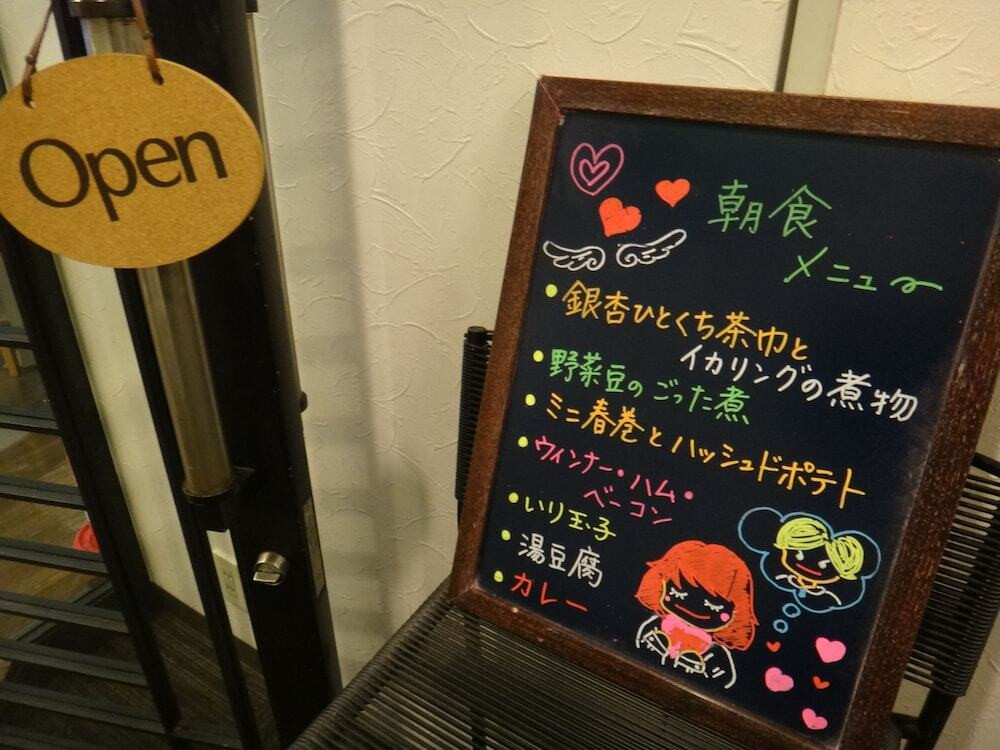 Open
朝食
メニュー
• 銀杏ひとくち茶巾と
イカリングの煮物
• 野菜豆のごった煮
• ミニ春巻とハッシュドポテト
• ウィンナー・ハム・
ベーコン
• いり玉子
• 湯豆腐
• カレー